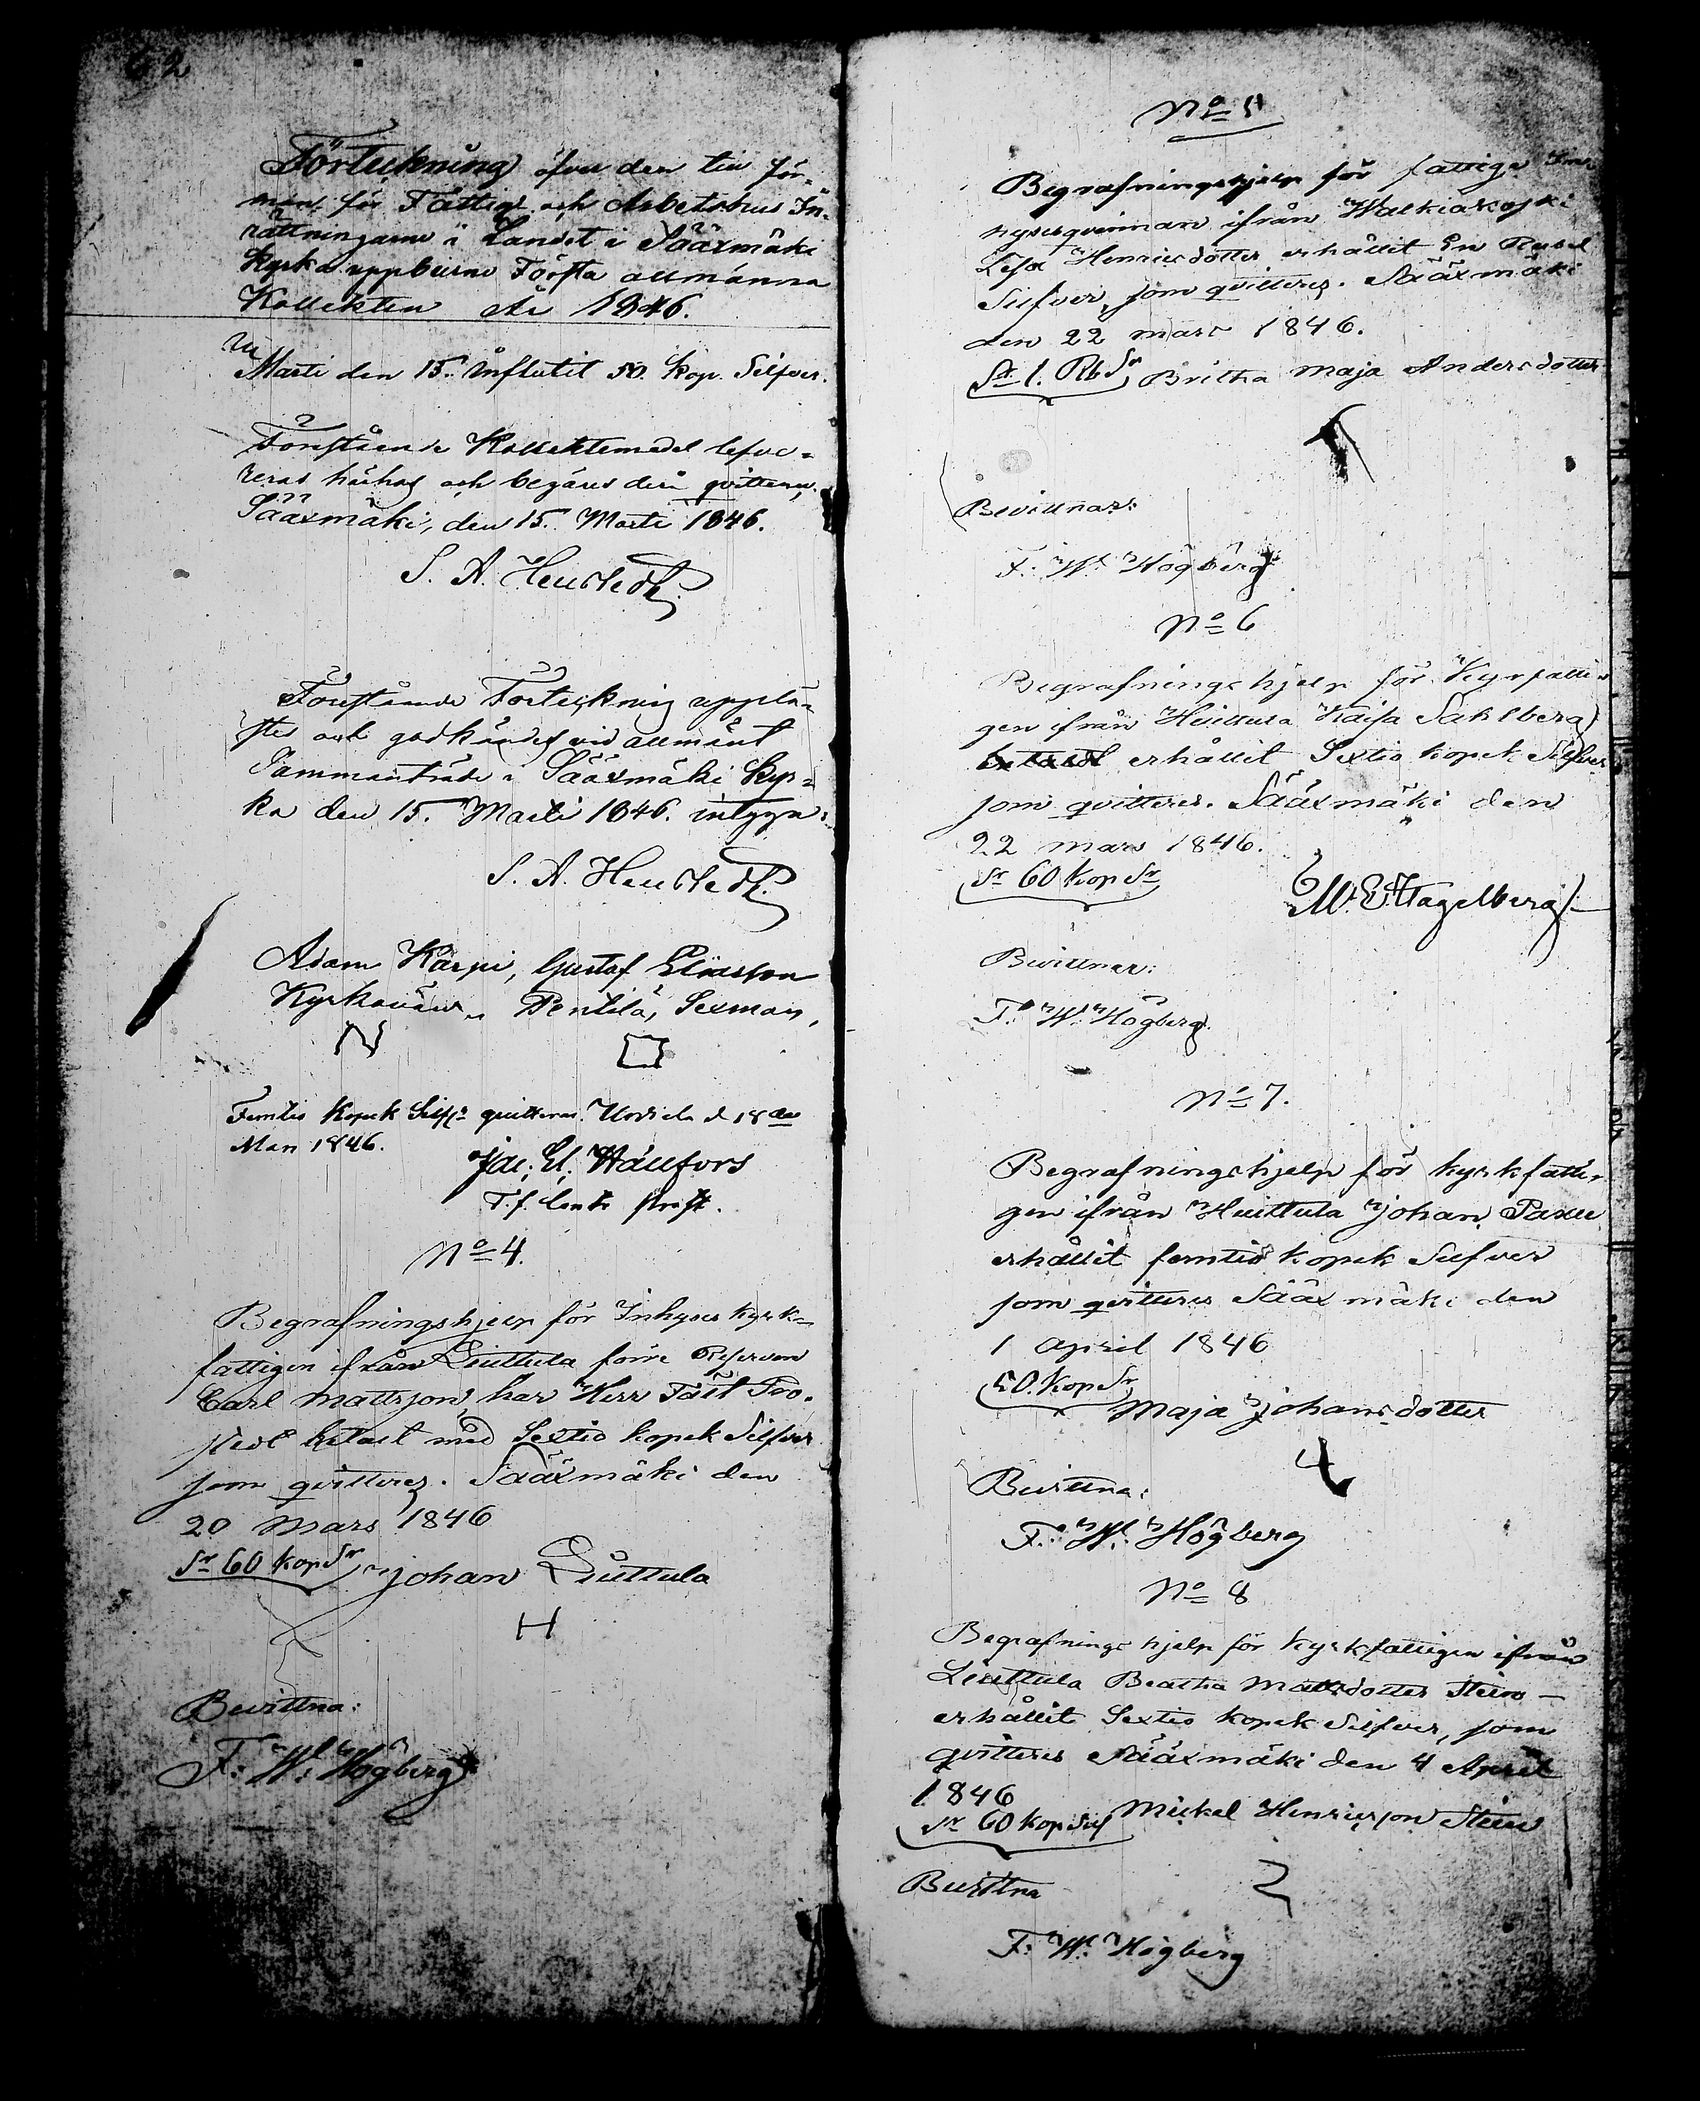 62
Förteckning öfver den till för-
mån för Fattige och Arbetshus In-
rättningarne i Landet i Sääxmäki
Kyrka uppburne Första allmänna
Kollekten År 1846.
Martii den 15. influtit 50. kop. Silfver.
Förestående Kollektemedel lefve-
reras härhos och begäres derå qvitterm.
Sääxmäki, den 15. Martii 1846.
S. A. Heurstedt.
Förestående Förteckning upplä-
stes och godkändes vid allmänt
Sammanträde i Sääxmäki Kyr-
ka den 15. Martii 1846. intyga:
S. A. Heurstedt.
Adam Kärpi, Gustaf Eliasson
Kyrkovärd. Pentilä, Sexman,
Femtio Kopek Silfr qvitteras. Urdiala d 18de
Mars 1846.
Jac. El. Wallfors
T. f. Contr Prost.
No 4.
Begrafningshjelp för Inhyses kyrk-
fattigen ifrån Liuttula förre Reserven
Carl Mattsson, har Herr Fält Pro-
sten betalt med Sextio kopek Silfver
som qvitteres. Sääxmäki den
20 Mars 1846
Sr 60 kop Sr Johan Liuttula
H
Bevittna:
F: W: Högberg
No 5
Begrafningshjelp för fattige In-
hysesqvinnan ifrån Walkiakoski
Lesa Henricsdotter erhållit En Rubel
Silfver, som qvitteres. Sääxmäki
den 22 mars 1846.
Sr 1. Rb Sr Britha Maja Andersdotter
Bevittnar:
F: W: Högberg
No 6
Begrafningshjelp för Kyrfatti-
gen ifrån Huittula Kaisa Sahlberg
erhållit Sextio kopek Silfver
som qvitteres. Sääxmäki den
22 mars 1846.
Sr 60 Kop Sr
M. E. Hagelberg
Bevittnar:
F: W: Högberg.
No 7.
Begrafningshjelp för kyrkfatti-
gen ifrån Huittula Johan
erhållit femtio kopek Silfver
som qvitteres Sääxmäki den
1 April 1846
50. Kop Sr
Maja Johansdotter
Bevittna:
F: W: Högberg
No 8
Begrafnings hjelp för kyrkfattigen ifrån
Liuttula Beatha Mattsdotter Stein -
erhållit Sextio kopek Silfver, som
qvitteres Sääxmäki den 4 April
1846
Sr 60 kop Silf Mickel Henricsson Stein
Bevittna
F: W: Högberg